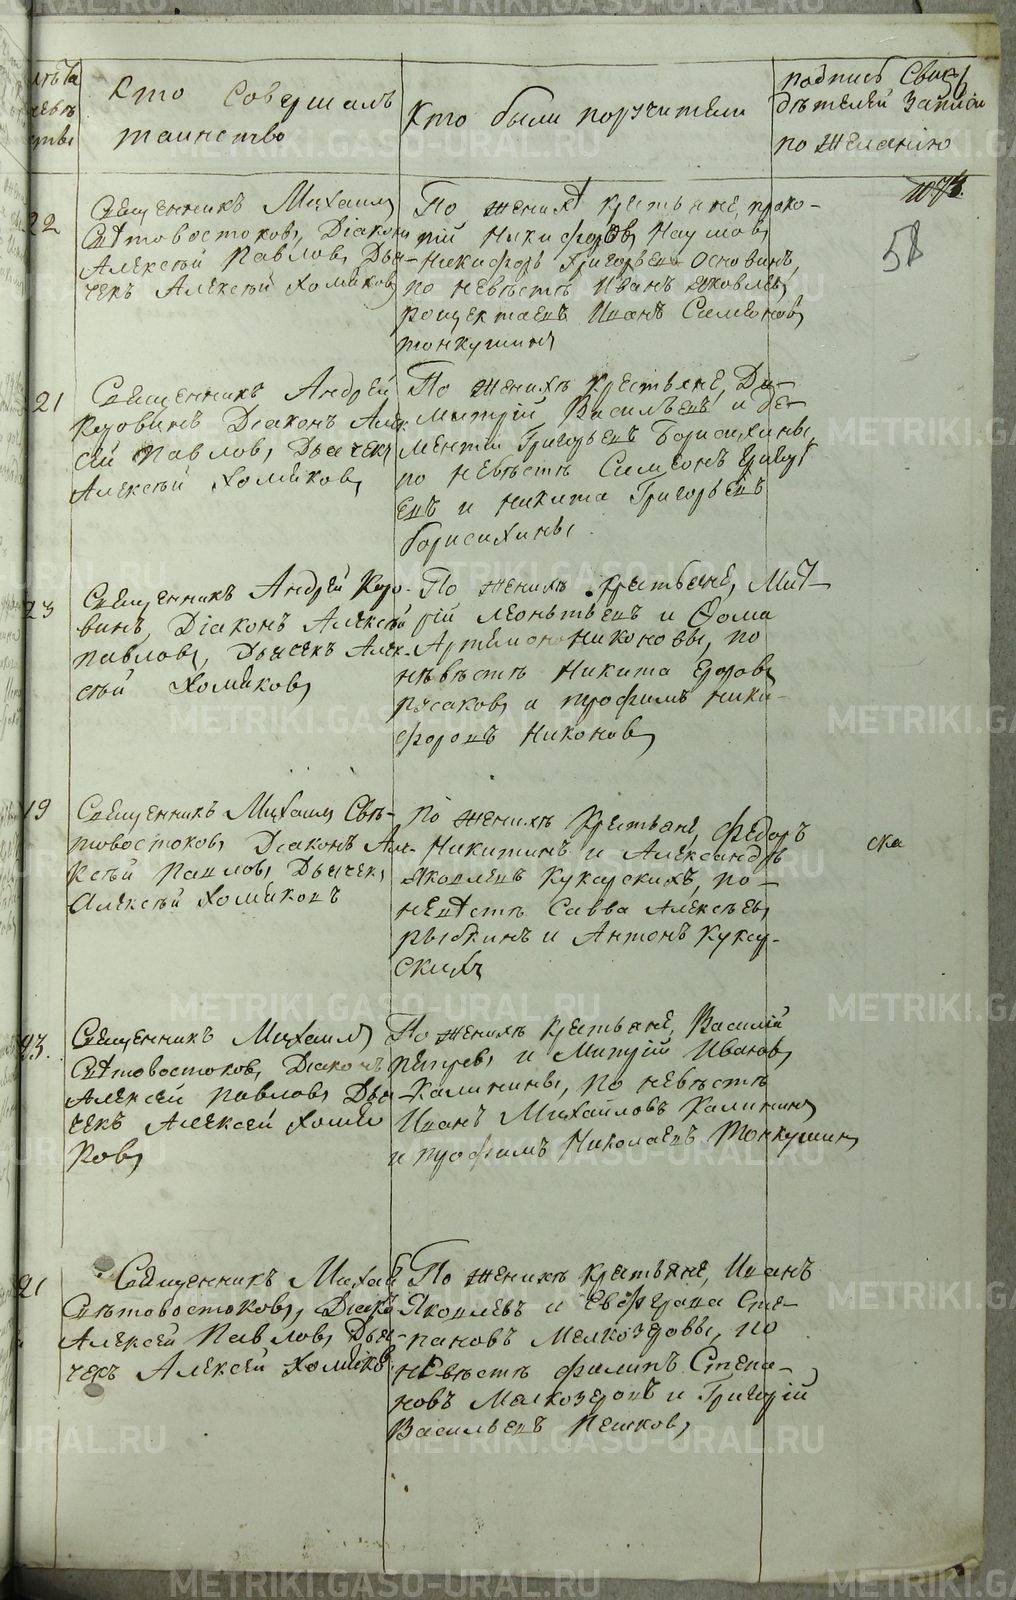 лѣта
невѣ
сты
Кто совершалъ
таинство
Кто были поручители
подпись свид
дѣтелей записи
по желанію
1073.
58
22
Священникъ Михаилъ
Свѣтовостоковъ, Діаконъ
Алексѣй Павловъ, Дья-
чекъ Алексѣй Хомяковъ
По женихѣ крестьяне, проко-
пій Никифоровъ Наумовъ,
Никифоръ Григорьевъ Основинъ,
по невѣстѣ Иванъ Яковлевъ
Иванъ Симеоновъ
тонкушинъ
21
Священникъ Андрей
Коровинъ Діаконъ Алек
сѣй Павловъ, Дьячекъ
Алексѣй Хомяковъ,
По женихѣ Крестьяне, Ди-
митрій Васильевъ и Де-
ментій Григорьевъ Борисихины,
по невѣстѣ Симеонъ Григорь
евъ и Никита Григорьевъ
борисихины.
23
Священникъ Андрей Коро-
винъ, Діаконъ Алексѣй
павловъ, Дьячекъ Алек-
сѣй Хомяковъ
По женихѣ крестьяне, Мит-
рій Леонтьевъ и Фома
Артемоно Никоновы, по
невѣстѣ Никита Егоровъ
русаковъ и трофимъ ники-
форовъ Никоновъ
19
Священникъ Михаилъ Свѣ-
товостоковъ Діаконъ Але-
ксѣй Павловъ, Дьячекъ
Алексѣй Хомяковъ
по женихѣ Крестьяне, Федоръ
Никитинъ и Александръ
Яковлевъ Куксурскихъ, по-
невѣстѣ Савва Алексѣевъ
рыбкинъ и Антонъ Куксу-
скихъ
ска
23.
Священникъ Михаилъ
Свѣтовостоковъ, Діаконъ
Алексей Павловъ Дья
чекъ Алексей Хомя
ковъ
По женихѣ крестьяне, Василій
Петровъ и Митрій Ивановъ
Калинины, по невѣстѣ
Иванъ Михайловъ Калининъ
и трофимъ Николаевъ Тонкушинъ
21
Священникъ Михаи
Свѣтовостоковъ, Діаконъ
Алексей Павловъ Дья-
чекъ Алексей Хомяковъ.
По женихѣ крестьяне, Иванъ
Яковлевъ и Евграфа Сте-
пановъ Мелкозеровы, по
невѣстѣ филипъ Степа-
новъ Мелкозеровъ и Григорій
Васильевъ Пешковъ
METRIKI.GASO-URAL.RU